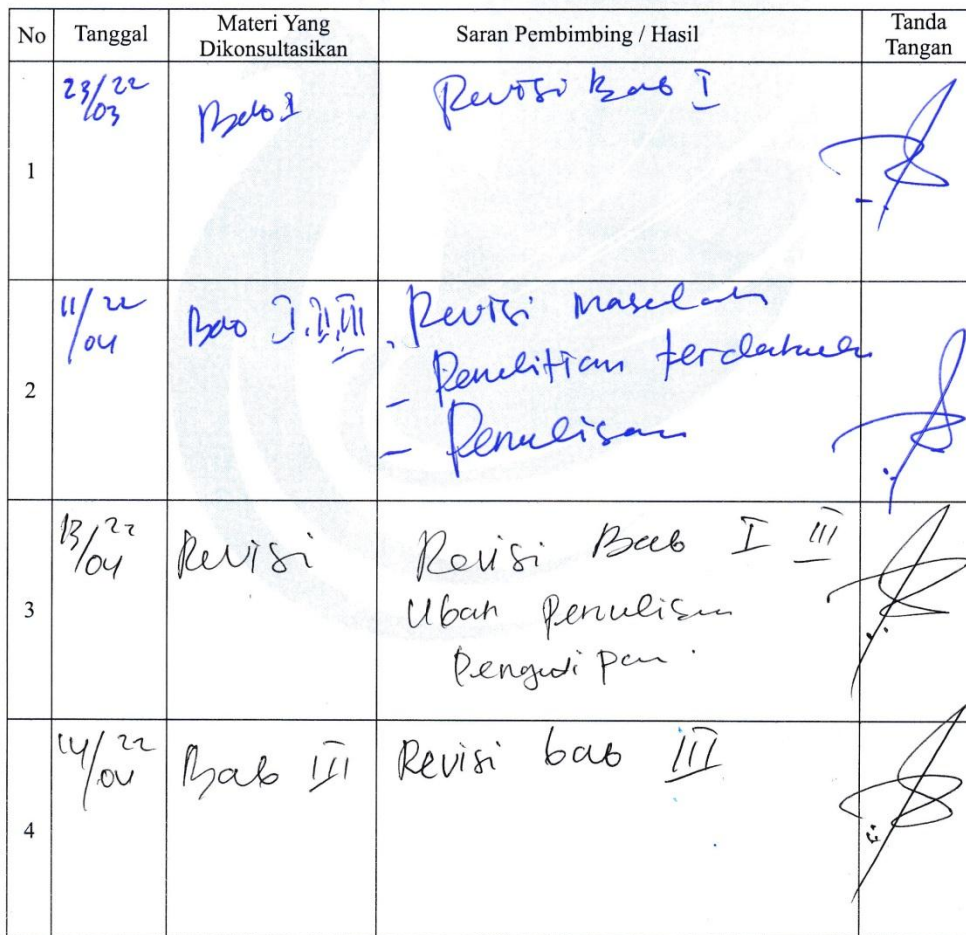 No Tanggal Materi Yang Dikonsultasikan Saran Pembimbing / Hasil Tanda Tangan
1 23/03 22 Bab I Revisi Bab I
2 11/04 22 Bab I, II, III - Revisi Masalah
- Penelitian terdahulu
- Penulisan
3 13/04 22 Revisi Revisi Bab I III
Ubah Penulisan
Pengutipan.
4 14/04 22 Bab III Revisi bab III